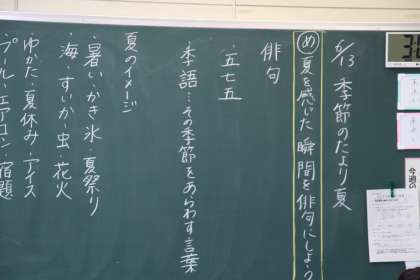 6/13 季節のたより 夏
め 夏を感じた瞬間を俳句にしよう
俳句
・五七五
・季語…その季節をあらわす言葉
夏のイメージ
・暑い・かき氷・夏祭り
・海・すいか・虫・花火
・ゆかた・夏休み・アイス
・プール・エアコン・宿題
今週の